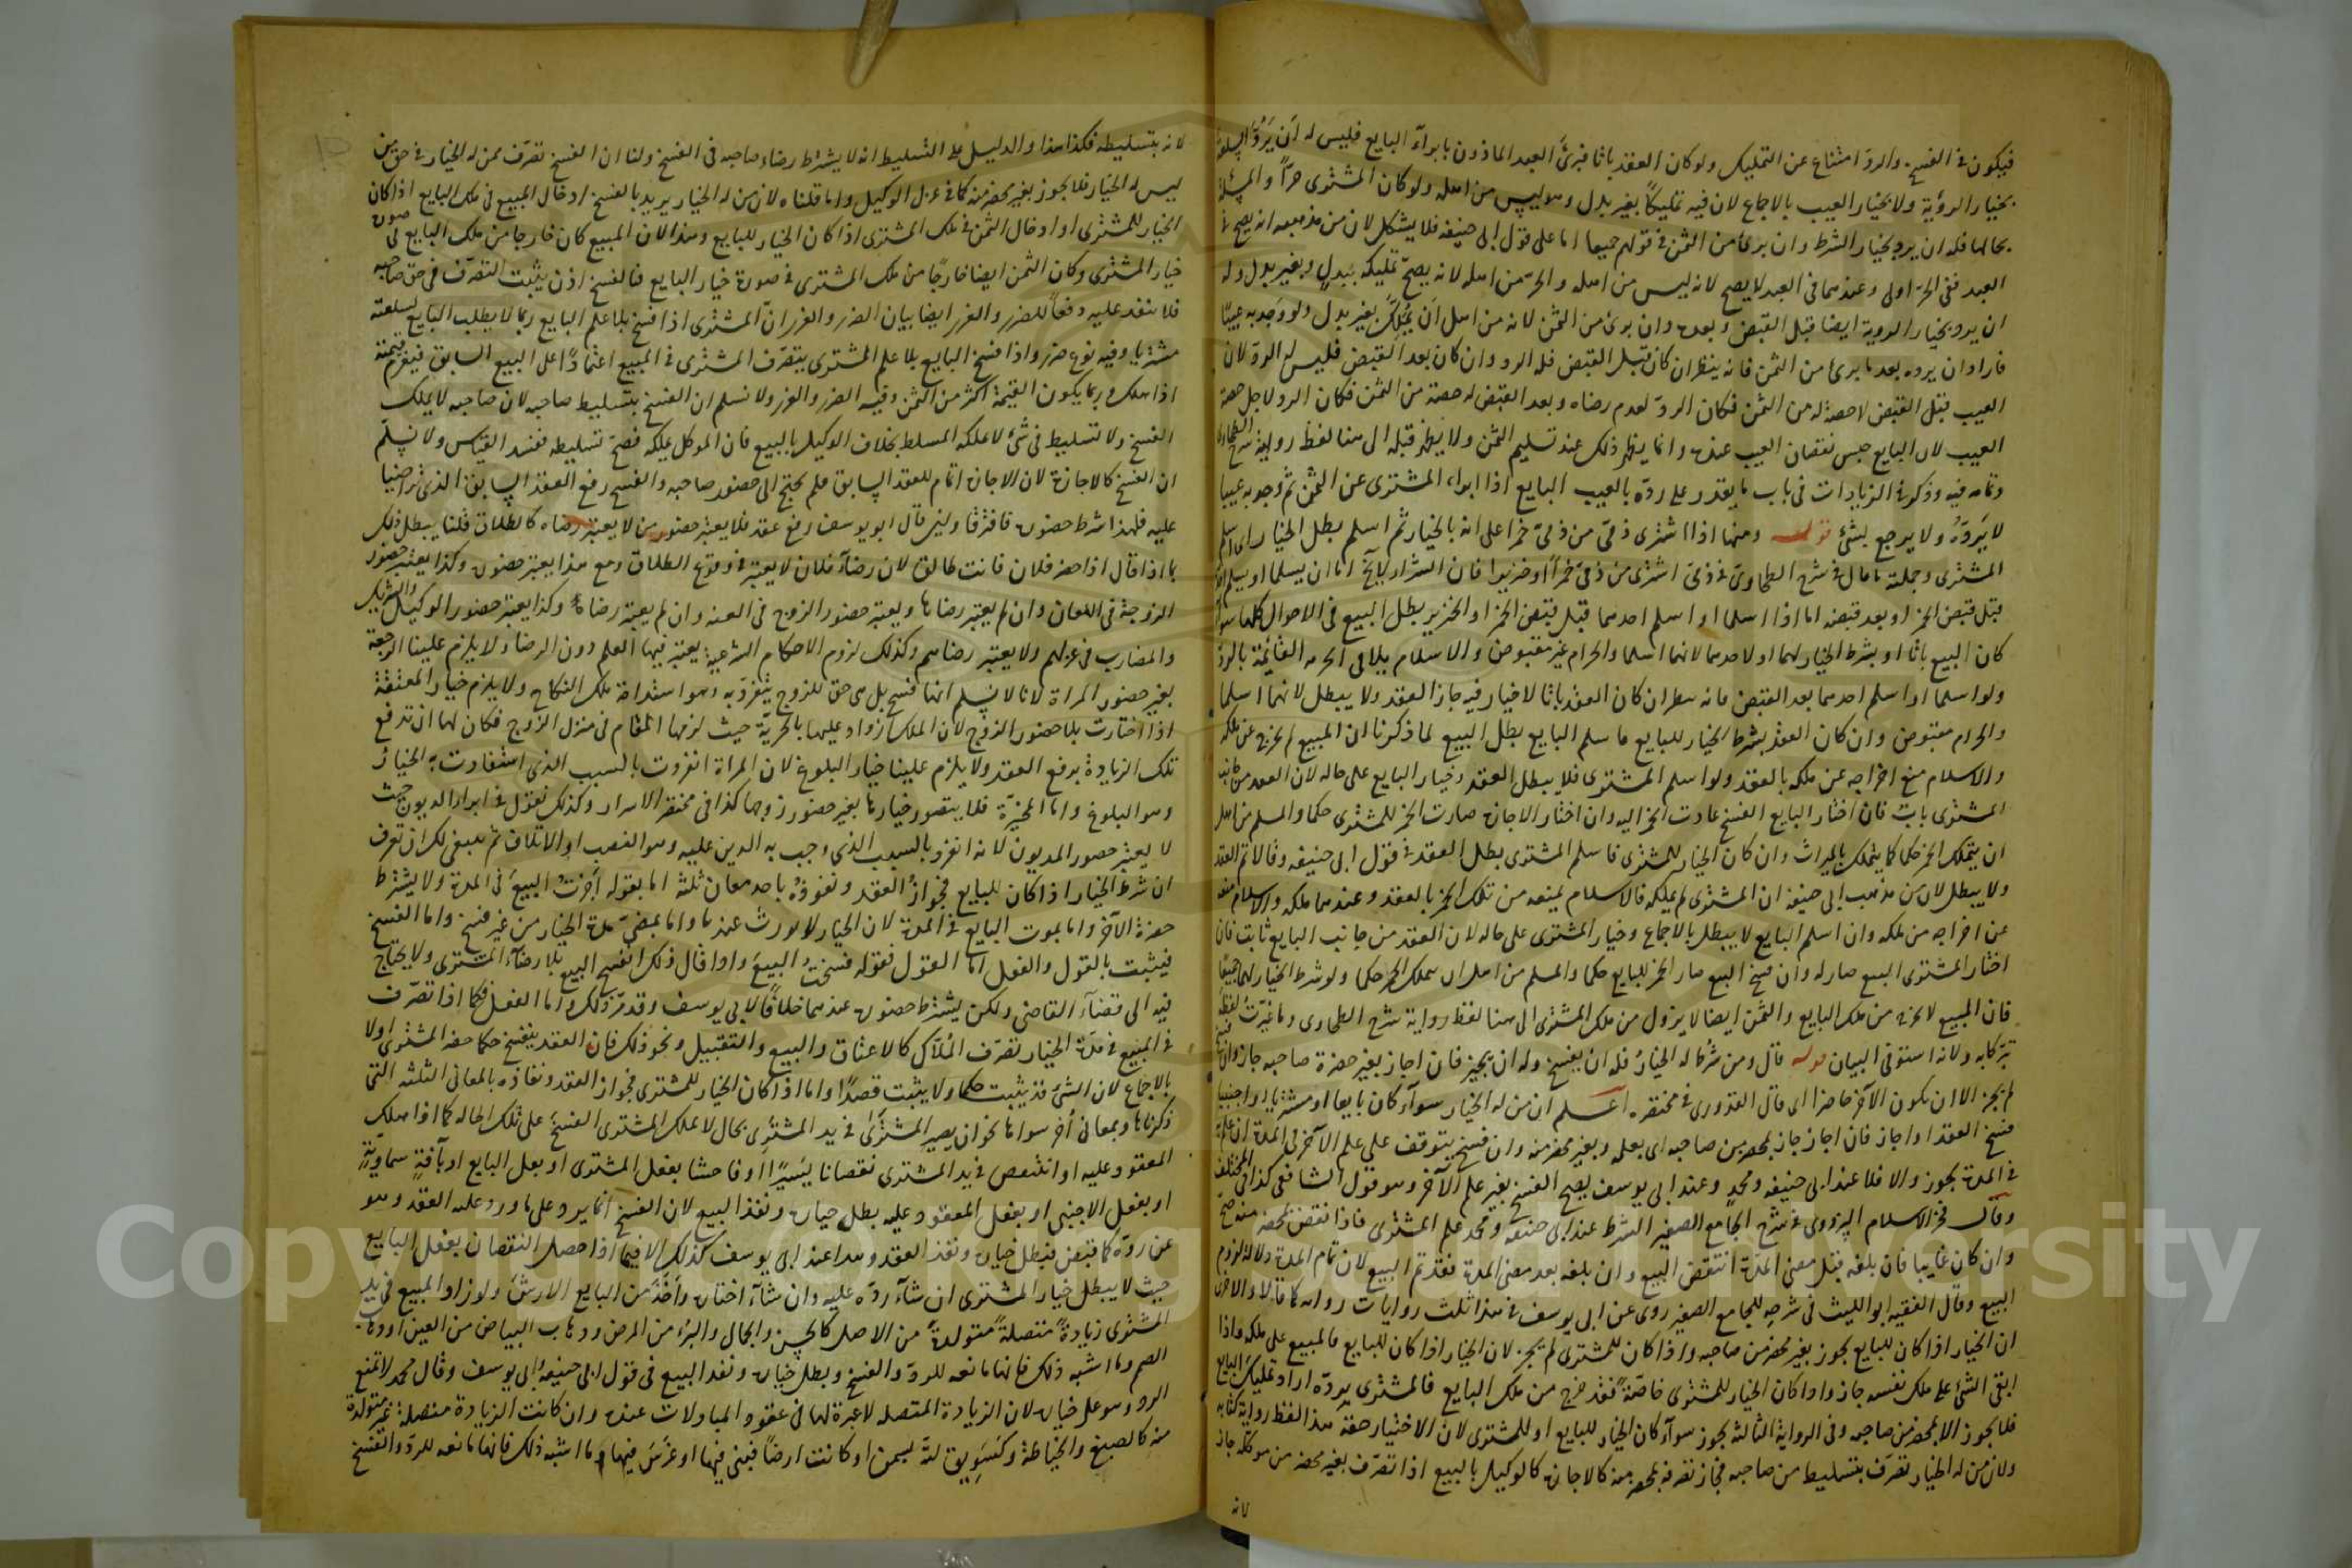 فيكون في الفسخ والرد امتناع عن التمليك ولو كان العقد باتا فبرئ العبد الماذون بابرآء البايع فليس له ان يرد السلعة
بخيار الرؤية ولا بخيار العيب بالاجماع لان فيه تمليكا بغير بدل وهو ليس من اهله ولو كان المشترى حرا والمسئلة
بحالها فله ان يرد بخيار الشرط وان برئ من الثمن في قولهم جميعا اما على قول ابى حنيفه فلا يشكل لان من مذهبه انه يصح في
العبد ففى الحر اولى وعندهما في العبد لا يصح لانه ليس من اهله والحر من اهله لانه يصح تمليكه ببدل وبغير بدل وله
ان يرد بخيار الروية ايضا قبل القبض وبعده وان برئ من الثمن لانه من اهل ان يملك بغير بدل ولو وجد به عيبا
فاراد ان يرده بعد ما برئ من الثمن فانه ينظر ان كان قبل القبض فله الرد وان كان بعد القبض فليس له الرد لان
العيب قبل القبض لا حصة له من الثمن فكان الرد لعدم رضاه وبعد القبض له حصة من الثمن فكان الرد لاجل حصة
العيب لان البايع حبس نقصان العيب عنده وانما يظهر ذلك عند تسليم الثمن ولا يظهر قبله الى هنا لفظ رواية شرح الطحاوى
وتمامه فيه وذكر في الزيادات في باب ما يقدر على رده بالعيب البايع اذا ابراء المشترى عن الثمن ثم وجد به عيبا
لا يرده ولا يرجع بشئ قوله ومنها اذا اشترى ذمى من ذمى خمرا على انه بالخيار ثم اسلم بطل الخيار اى اسلم
المشترى وجملة ما قال في شرح الطحاوى في ذمى اشترى من ذمى خمرا او خنزيرا فان الشراء لا يخ اما ان يسلما او يسلم احدهما
قبل قبض الخمر او بعد قبضه اما اذا اسلما او اسلم احدهما قبل قبض الخمر او الخنزير بطل البيع في الاحوال كلها سوآء
كان البيع باتا او بشرط الخيار لهما او لاحدهما لانهما اسلما والحرام غير مقبوض والاسلام يلاقى الحرمة القائمة بالرد
ولو اسلما او اسلم احدهما بعد القبض فانه ينظر ان كان العقد باتا لا خيار فيه جاز العقد ولا يبطل لانهما اسلما
والحرام مقبوض وان كان العقد بشرط الخيار للبايع فاسلم البايع بطل البيع لما ذكرنا ان المبيع لم يخرج عن ملكه
والاسلام منع اخراجه عن ملكه بالعقد ولو اسلم المشترى فلا يبطل العقد وخيار البايع على حاله لان العقد من جانب
المشترى بات فان اختار البايع الفسخ عادت الخمر اليه وان اختار الاجازة صارت الخمر للمشترى حكما والمسلم من اهل
ان يتملك الخمر حكما كما يتملك بالميراث وان كان الخيار للمشترى فاسلم المشترى بطل العقد في قول ابى حنيفه وقالا تم العقد
ولا يبطل لان من مذهب ابى حنيفة ان المشترى لم يملكه فالاسلام يمنعه من تملك الخمر بالعقد وعندهما ملكه والاسلام منعه
عن اخراجه من ملكه وان اسلم البايع لا يبطل بالاجماع وخيار المشترى على حاله لان العقد من جانب البايع ثابت فان
اختار المشترى البيع صار له وان فسخ البيع صار الخمر للبايع حكما والمسلم من اهل ان يتملك الخمر حكما ولو شرط الخيار لهما جميعا
فان المبيع لا يخرج من ملك البايع والثمن ايضا لا يزول من ملك المشترى الى هنا لفظ رواية شرح الطحاوى وما غيرت لفظه
تبركا به ولانه استوفى البيان قوله قال ومن شرط له الخيار فله ان يفسخ وله ان يجيز فان اجاز بغير حضرة صاحبه جاز وان فسخ
لم يجز الا ان يكون الآخر حاضرا اى قال القدورى في مختصره اعلم ان من له الخيار سوآء كان بايعا او مشتريا او اجنبيا
فسخ العقد او اجاز فان اجاز جاز بمحضر من صاحبه اى بعلمه وبغير محضر منه وان فسخ يتوقف على علم الآخر في المدة ان علمه
في المدة يجوز والا فلا عند ابى حنيفه ومحمد وعند ابى يوسف يصح الفسخ بغير علم الآخر وهو قول الشافعى كذا في المختلف
وقال فخر الاسلام البزدوى في شرح الجامع الصغير الشرط عند ابى حنيفه ومحمد علم المشترى فاذا نقض بمحضر منه صح
وان كان غايبا فان بلغه قبل مضى المدة انتقض البيع وان بلغه بعد مضى المدة فقد تم البيع لان تمام المدة دلالة لزوم
البيع وقال الفقيه ابو الليث في شرحه للجامع الصغير روى عن ابى يوسف في هذا ثلث روايات رواية كما قالا والاخرى
ان الخيار اذا كان للبايع يجوز بغير محضر من صاحبه واذا كان للمشترى لم يجز لان الخيار اذا كان للبايع فالمبيع على ملكه فاذا
ابقى الشئ على ملك نفسه جاز واذا كان الخيار للمشترى خاصة فقد خرج من ملك البايع فالمشترى يرده اراد تمليك البايع
فلا يجوز الا بمحضر من صاحبه وفى الرواية الثالثة يجوز سوآء كان الخيار للبايع او للمشترى لان الاختيار حقه هذا لفظ رواية كتابه
ولان من له الخيار تصرف بتسليط من صاحبه فجاز تصرفه بمحضر منه كالاجازة كالوكيل بالبيع اذا تصرف بغير محضر من موكله جاز
لانه
لانه بتسليطه فكذا هذا والدليل على التسليط انه لا يشترط رضاء صاحبه في الفسخ ولنا ان الفسخ تصرف ممن له الخيار في حق من
ليس له الخيار فلا يجوز بغير محضر منه كما في عزل الوكيل وانما قلناه لان من له الخيار يريد بالفسخ ادخال المبيع في ملك البايع اذا كان
الخيار للمشترى او ادخال الثمن في ملك المشترى اذا كان الخيار للبايع وهذا لان المبيع كان خارجا من ملك البايع في صورة
خيار المشترى وكان الثمن ايضا خارجا من ملك المشترى في صورة خيار البايع فالفسخ اذن يثبت التصرف في حق صاحبه
فلا ينفذ عليه دفعا للضرر والغرر ايضا بيان الضرر والغرر ان المشترى اذا فسخ بلا علم البايع ربما لا يطلب البايع لسلعته
مشتريا وفيه نوع ضرر واذا فسخ البايع بلا علم المشترى يتصرف المشترى في المبيع اعتمادا على البيع السابق فيغرم قيمته
اذا هلك وربما يكون القيمة اكثر من الثمن وفيه الضرر والغرر ولا نسلم ان الفسخ بتسليط صاحبه لان صاحبه لا يملك
الفسخ ولا تسليط في شئ لا يملكه المسلط بخلاف الوكيل بالبيع فان الموكل يملكه فصح تسليطه ففسد القياس ولا نسلم
ان الفسخ كالاجازة لان الاجازة اتمام للعقد السابق فلم يحتج الى حضور صاحبه والفسخ رفع العقد السابق الذى تراضيا
عليه فلهذا شرط حضوره فافترقا ولئن قال ابو يوسف رفع عقد فلا يعتبر حضور من لا يعتبر رضاه كالطلاق قلنا يبطل ذلك
بما اذا قال اذا حضر فلان فانت طالق لان رضآء فلان لا يعتبر في وقوع الطلاق ومع هذا يعتبر حضوره وكذا يعتبر حضور
الزوجة في اللعان وان لم يعتبر رضاها ويعتبر حضور الزوج في العنه وان لم يعتبر رضاه وكذا يعتبر حضور الوكيل والشريك
والمضارب في عزلهم ولا يعتبر رضاهم وكذلك لزوم الاحكام الشرعية يعتبر فيها العلم دون الرضا ولا يلزم علينا الرجعة
بغير حضور المراة لانا لا نسلم انها فسخ بل هى حق للزوج يتفرد به وهو استدامة ملك النكاح ولا يلزم خيار المعتقة
اذا اختارت بلا حضور الزوج لان الملك ازداد عليها بالحرية حيث لزمها المقام في منزل الزوج فكان لها ان تدفع
تلك الزيادة برفع العقد ولا يلزم علينا خيار البلوغ لان المراة انفردت بالسبب الذى استفادت به الخيار
وهو البلوغ واما المخيرة فلا يتصور خيارها بغير حضور زوجها كذا في مختصر الاسرار وكذلك نقول في ابراء المديون حيث
لا يعتبر حضور المديون لانه انفرد بالسبب الذى وجب به الدين عليه وهو الغصب او الاتلاف ثم ينبغى لك ان تعرف
ان شرط الخيار اذا كان للبايع فجواز العقد ونفوذه باحد معان ثلثة اما بقوله اجزت البيع في المدة ولا يشترط
حضرة الآخر واما بموت البايع في المدة لان الخيار لا يورث عندنا واما بمضى مدة الخيار من غير فسخ واما الفسخ
فيثبت بالقول والفعل اما القول فقوله فسخت البيع واذا قال ذلك انفسخ البيع بلا رضآء المشترى ولا يحتاج
فيه الى قضآء القاضى ولكن يشترط حضوره عندهما خلافا لابى يوسف وقد مر ذلك واما الفعل فكما اذا تصرف
في المبيع في مدة الخيار تصرف الملاك كالاعتاق والبيع والتقبيل ونحو ذلك فان العقد ينفسخ حكما حضر المشترى اولا
بالاجماع لان الشئ قد يثبت حكما ولا يثبت قصدا واما اذا كان الخيار للمشترى فجواز العقد ونفاذه بالمعانى الثلثه التى
ذكرناها وبمعانى اخر سواها نحو ان يصير المشترى في يد المشترى بحال لا يملك المشترى الفسخ على تلك الحاله كما اذا هلك
المعقود عليه او انتقص في يد المشترى نقصانا يسيرا او فاحشا بفعل المشترى او بفعل البايع او بآفة سماوية
او بفعل الاجنبى او بفعل المعقود عليه بطل خياره ونفذ البيع لان الفسخ انما يرد على ما ورد عليه العقد وهو
عن رده كما قبض فبطل خياره ونفذ العقد وهذا عند ابى يوسف كذلك الا فيما اذا حصل النقصان بفعل البايع
حيث لا يبطل خيار المشترى ان شآء رده عليه وان شآء اختاره واخذ من البايع الارش ولو زاد المبيع في يد
المشترى زيادة متصلة متولدة من الاصل كالحسن والجمال والبرء من المرض وذهاب البياض من العين او ذهاب
الصم وما اشبه ذلك فانها مانعه للرد والفسخ وبطل خياره ونفذ البيع في قول ابى حنيفة وابى يوسف وقال محمد لا تمنع
الرد وهو على خياره لان الزيادة المتصله لا عبرة لها في عقود المبادلات عنده وان كانت الزيادة متصلة غير متولدة
منه كالصبغ والخياطة وكسويق لته بسمن او كانت ارضا فبنى فيها او غرس فيها وما اشبه ذلك فانها مانعه للرد والفسخ
Copyright © King Saud University